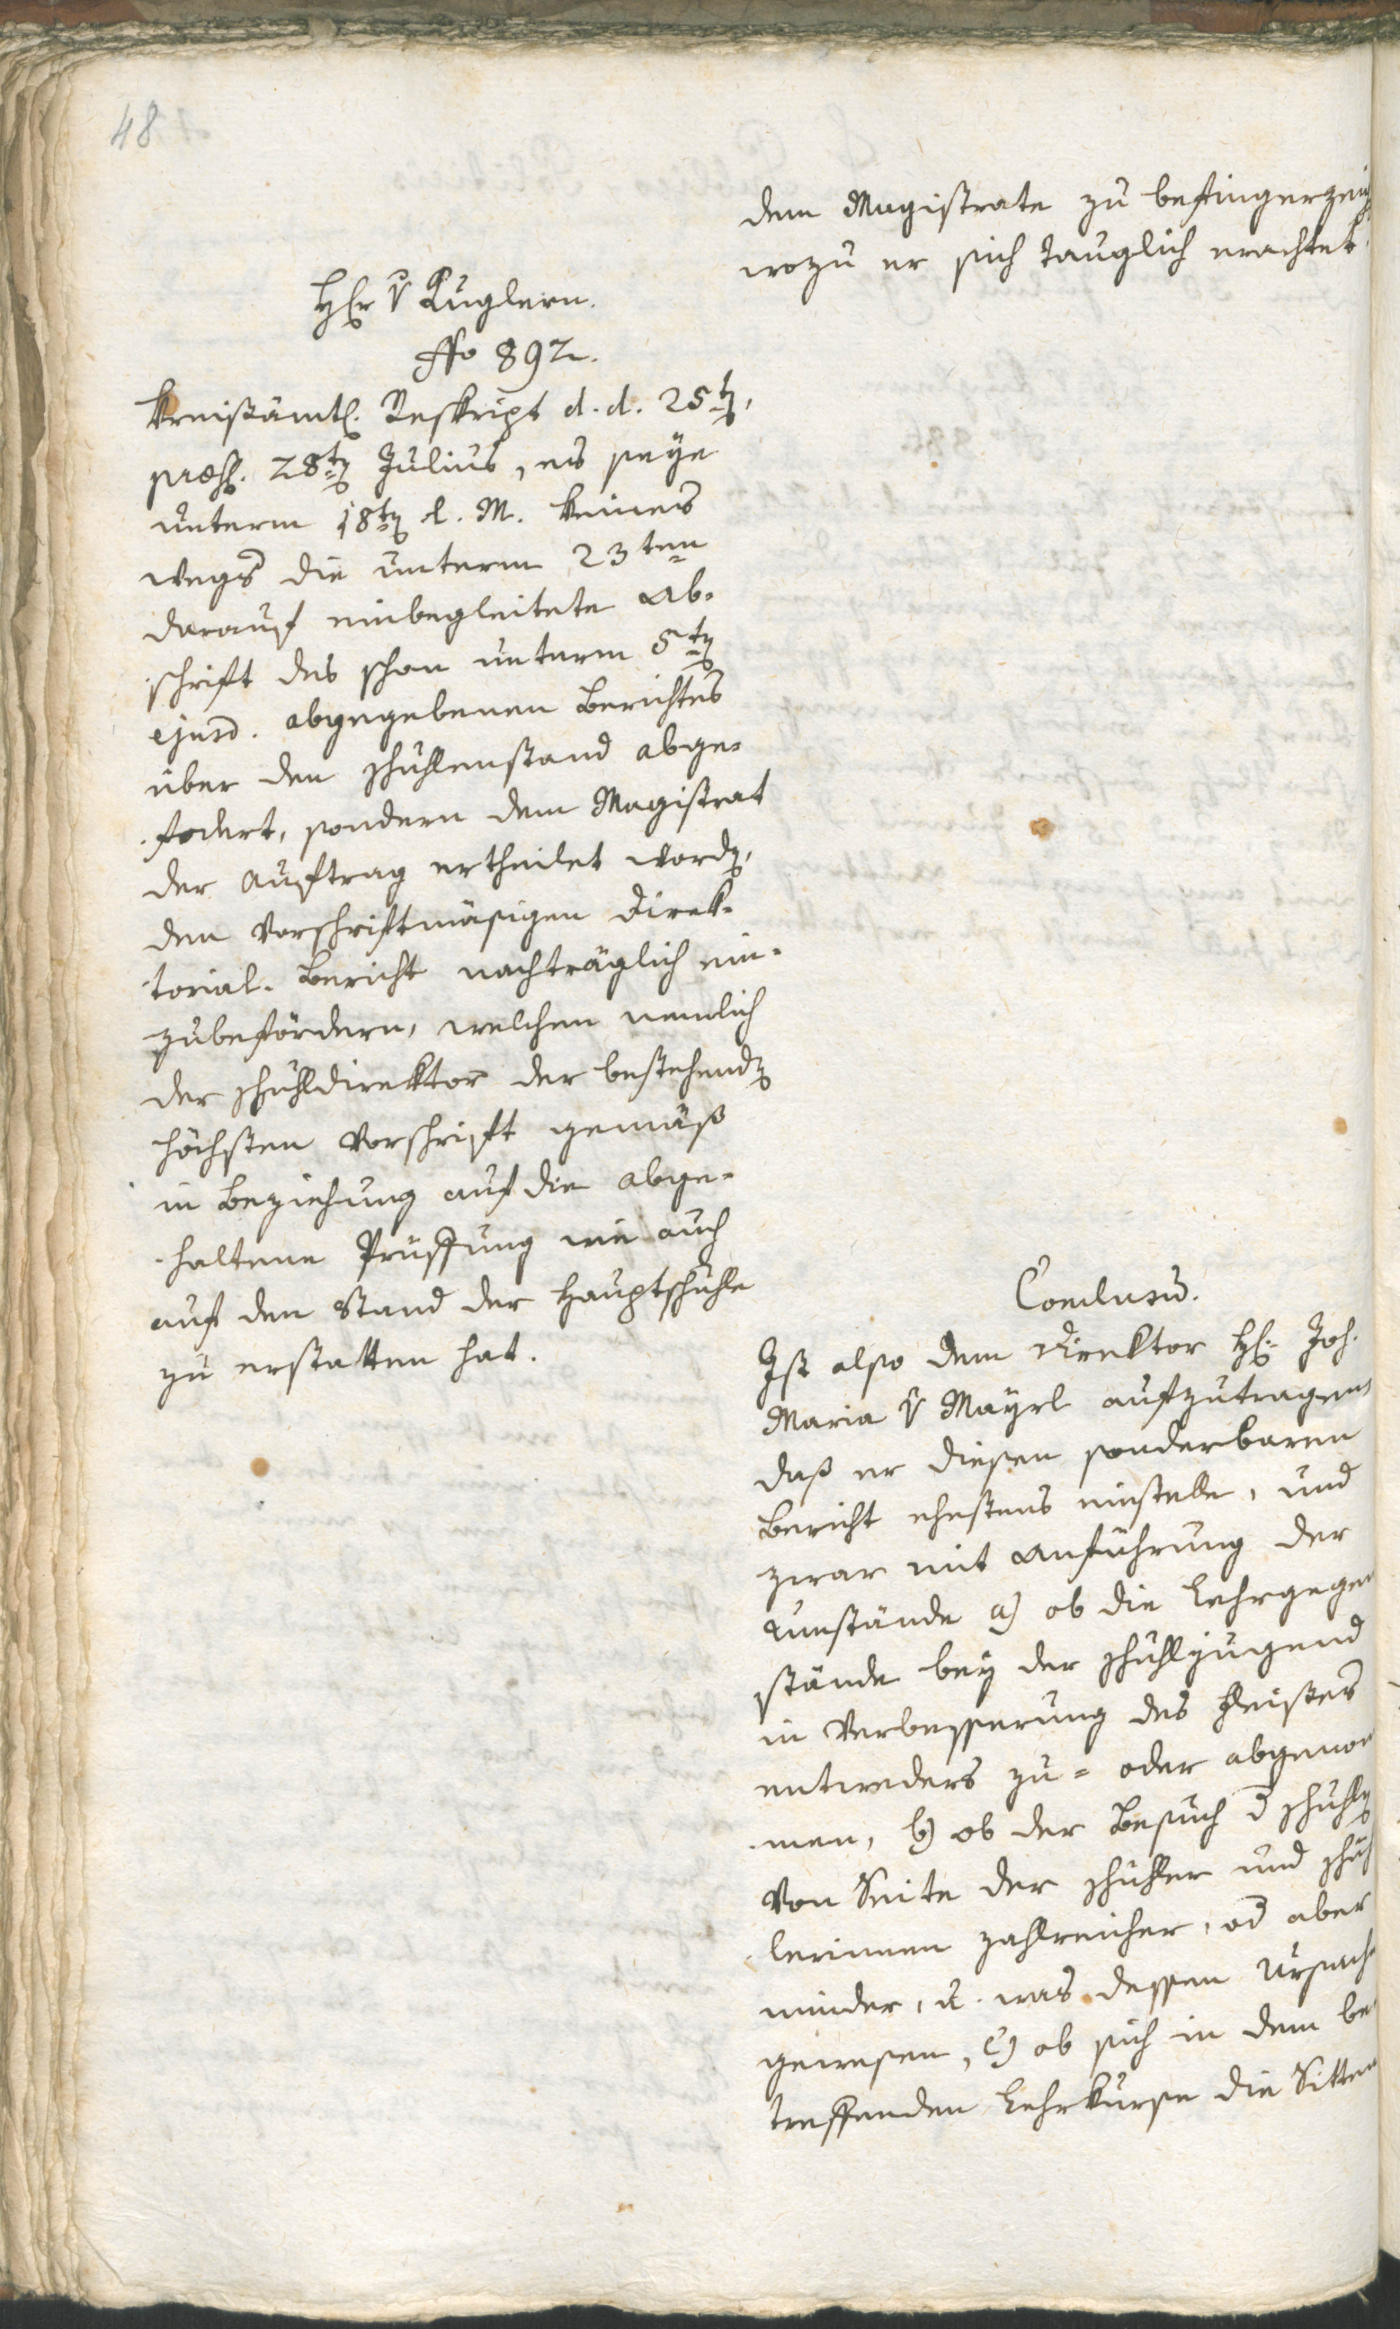 48
dem Magistrate zu befingerzeig
wozu er sich tauglich erachtet.
Hr v Kuglern.
No 892.
Kreisämtl. Reskript d. d. 25t,
præs. 28t Julius, es seye
unterm 18t d. M. keines
wegs die unterm 23ten
darauf einbegleitete Ab-
schrift des schon unterm 5t
ejusd. abgegebenen Berichtes
über den Schuhlenstand abge-
fodert, sondern dem Magistrat
der Auftrag ertheilet word,
den vorschriftmäsigen Direk-
torial-Bericht nachträglich ein-
zubefördern, welchen nemlich
der Schuhldirektor der bestehend
höchsten Vorschrift gemäß
in Beziehung auf die abge-
haltene Prüffung wie auch
auf den Stand der Hauptschuhle
zu erstatten hat.
Conclusu.
Ist also dem Direktor H. Joh.
Maria v Mayrl aufzutragen,
daß er diesen sonderbaren
Bericht ehestens einstelle, und
zwar mit Anführung der
Umstände a) ob die Lehrgegen
stände bey der Schuhljugend
in Verbesserung des Fleißes
entweders zu- oder abgenom
men, b) ob der Besuch d Schuhl
von Seite der Schuhler und Schuh
lerinnen zahlreicher, od aber
minder, u. was dessen Ursach
gewesen, c) ob sich in dem be
treffenden Lehrkurse die Sitten